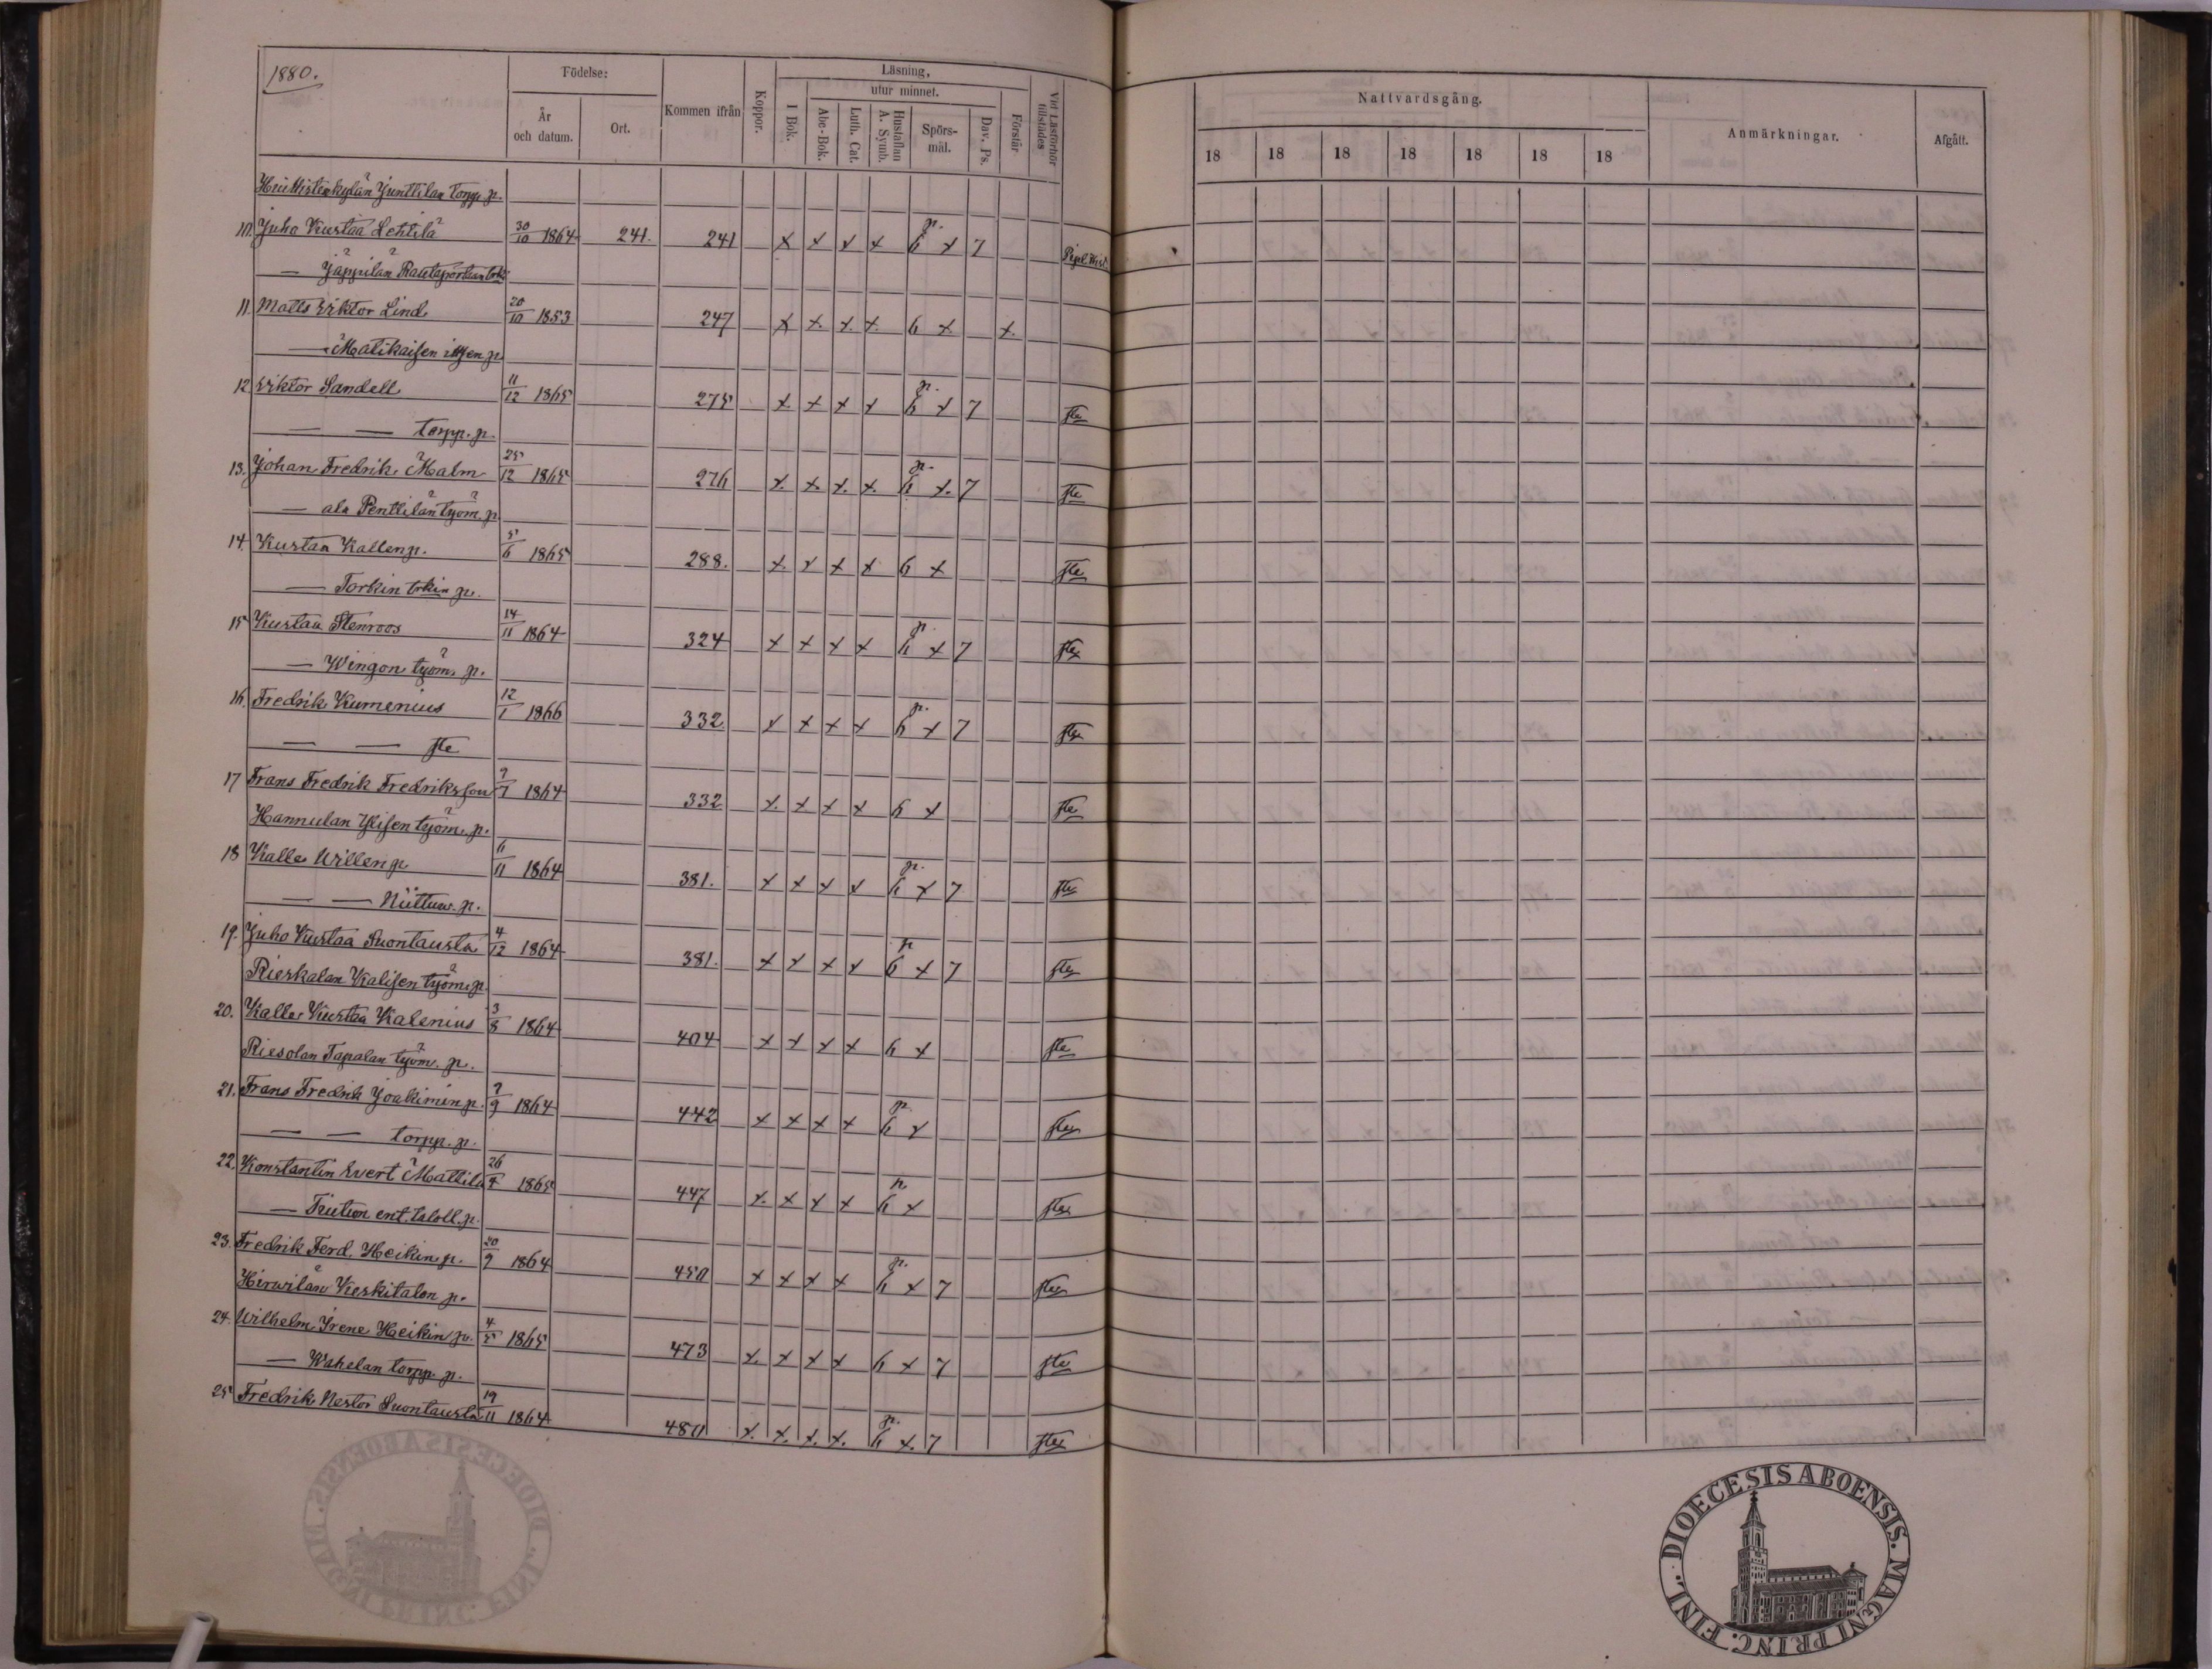 1880.
Födelse:
År och datum.
Ort.
Kommen ifrån
Koppor.
Läsning,
utur minnet.
I Bok.
Abc-Bok.
Luth. Cat.
Hustaflan A. Symb.
Spörsmål.
Dav. Ps.
Förstår
Vid Läsförhör tillstädes
Nattvardsgång.
18 18 18 18 18 18 18
Anmärkningar.
Afgått.
Juntilan torpp. p.
10. Juho Kustaa Lehtilä 30/10 1864 241. 241 x x x x p. 6 x 7
— Jäppilän
11. Matts Wiktor Lind 20/10 1853 247 x x x x 6 x x
— Matikaisen p.
12. Wiktor Sandell 11/12 1865 275 x x x x p. 6 x 7 ste
— — torpp. p.
13. Johan Fredrik Malm 25/12 1865 276 x x x x p. 6 x 7 ste
— ala Penttilän työm. p.
14. Kustaa Kallenp. 5/6 1865 288. x x x x 6 x ste
— Torkin trkin p.
15 Kustaa Stenroos 14/11 1864 324 x x x x p. 6 x 7 ste
— Wingon työm. p.
16. Fredrik Kumenius 12/1 1866 332 x x x x p. 6 x 7 ste
— — ste
17 Frans Fredrik Fredriksson 7/7 1864 332 x x x x 6 x ste
Hannulan Ylisen työm. p.
18 Kalle Willenp. 6/11 1864 381. x x x x p. 6 x 7 ste
— — Niittuw. p.
19. Juho Kustaa Suontausta 4/12 1864 381. x x x x p 6 x 7 ste
Rieskalan Kalisen työm. p.
20. Kalle Kustaa Kalenius 3/8 1864 404 x x x x 6 x ste
Riesolan Tapalan työm. p.
21. Frans Fredrik Joakimin p. 7/9 1864 442 x x x x p. 6 x ste
— — torpp. p.
22. Konstantin Evert Mattila 26/4 1865 447 x x x x p 6 x ste
— ent. taloll. p.
23. Fredrik Ferd. Heikin p. 20/9 1864 450 x x x x p. 6 x 7 ste
Hirwilän Keskitalon p.
24. Wilhelm Irene Heikin p. 4/5 1865 473 x x x x 6 x 7 ste
— Wahelan torpp. p.
25 Fredrik Nestor Suontausta 19/11 1864 480 x x x x p. 6 x 7 ste
DIOECESIS ABOENSIS. MAGNI PRINC. FINL.